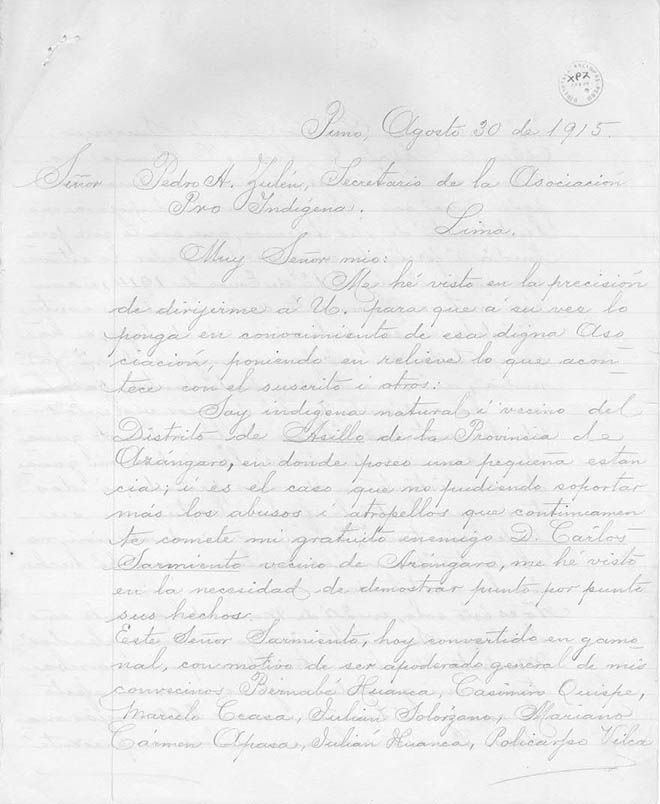 Puno, Agosto 30 de 1915.
Señor Pedro A. Zulén, Secretario de la Asociación
Pro Indígena.
Lima.
Muy Señor mio:
Me hé visto en la precisión
de dirijirme á U. para que á su vez lo
ponga en conocimiento de esa digna Aso
ciación, poniendo en relieve lo que acon-
tece con el suscrito i otros:
Soy indígena natural i vecino del
Distrito de Asillo de la Provincia de
Azángaro, en donde poseo una pequeña estan
cia; i es el caso que no pudiendo soportar
más los abusos i atropellos que continuamen
te comete mi gratuito enemigo D. Carlos
Sarmiento vecino de Azángaro, me hé visto
en la necesidad de demostrar punto por punto
sus hechos.
Este Señor Sarmiento, hoy convertido en gamo
nal, con motivo de ser apoderado general de mis
convecinos Bernabé Huanca, Casimiro Quispe,
Marcelo Ccaca, Julián Solórzano, Mariano
Cármen Apasa, Julián Huanca, Policarpo Vilca